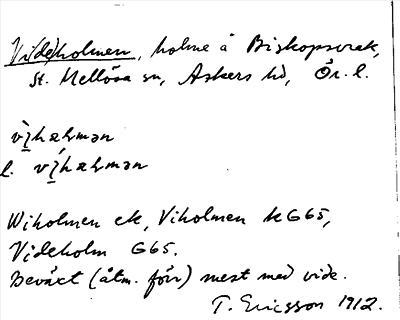 Vi(de)holmen, holme å Biskopsvrak,
St. Mellösa sn, Askers hd, Ör. l.
l.
Wiholmen ek, Viholmen k G65,
Videholm G65.
Beväxt (åtm. förr) mest med vide.
T. Ericsson 1912.